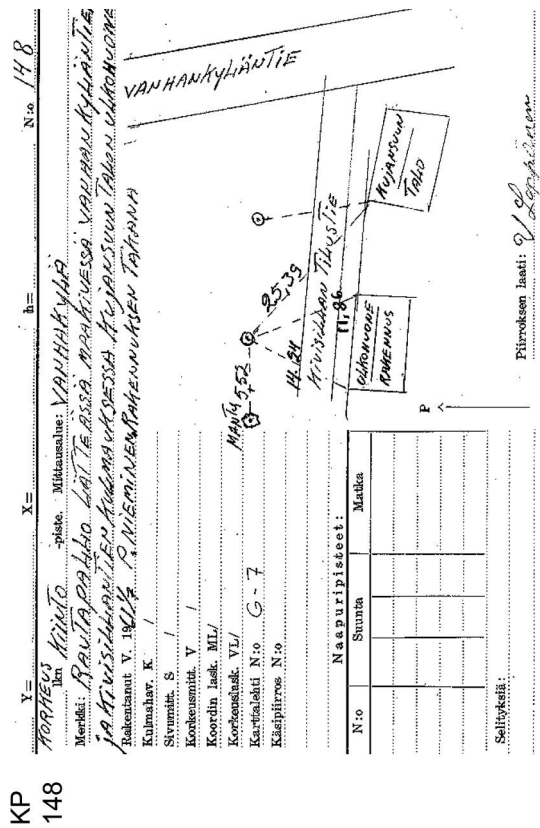 KP
148
Y= X= h= N:o 148
KORKEUS
lkn KIINTO -piste. Mittausalue: VANHAKYLÄ
Merkki: RAUTAPAHHO LATTEASSA MAAKIVESSÄ VANHANKYLÄNTIEN
JA KIVISILLANTIEN KULMAUKSESSA, KUJANSUUN TALON ULKOHUONE
Rakentanut V. 19 P. NIEMINEN RAKENNUKSEN TAKANA
Kulmahav. K /
Sivumitt. S /
Korkeusmitt. V /
Koordin lask. ML/
Korkeuslask. VL/
Karttalehti N:o G-7
Käsipiirros N:o
Naapuripisteet:
N:o Suunta Matka
Selityksiä:
VANHANKYLÄNTIE
MÄNTY 5,52
25,39
14.24
KIVISILLAN TILUSTIE
11,86
ULKOHUONE
RAKENNUS
KUJANSUUN
TALO
P
Piirroksen laati: V Leppänen